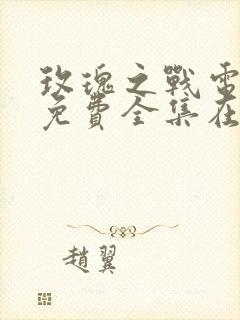 玫瑰之戰電
免費全集在
趙翼